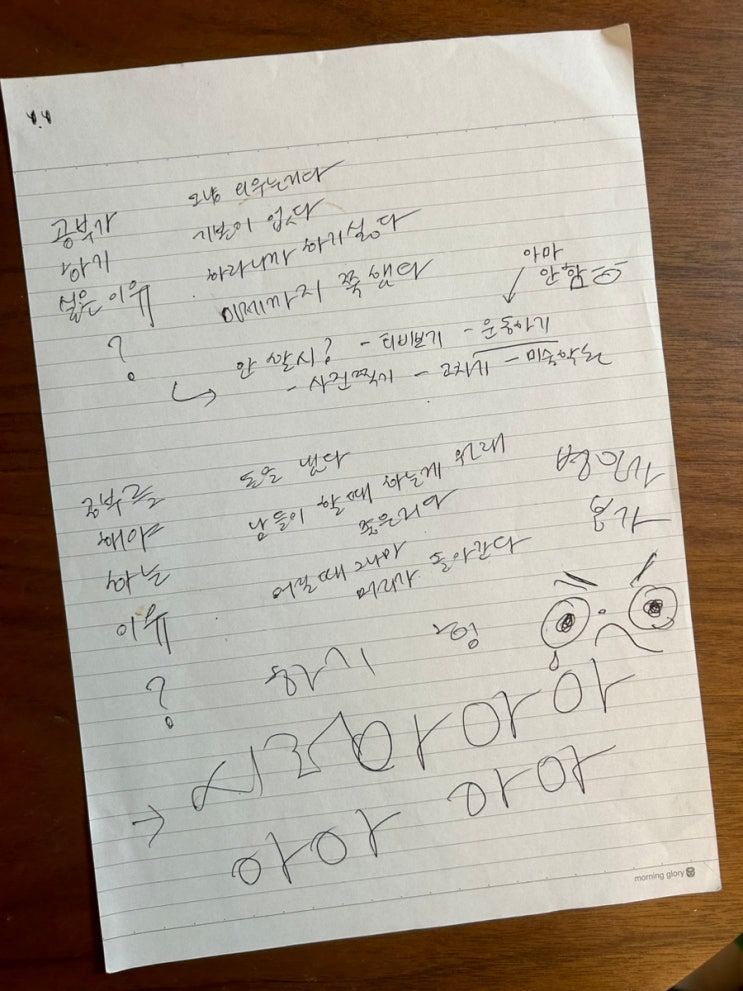 공부가
하기
싫은 이유
?
그냥 외우는거다
기본이 없다
하라니까 하기싫다
이제까지 쭉 했다
아마
안 함
안 할시? - 티비보기 - 운동하기
- 사진찍기 - 그자기 - 미술학원
공부를
해야
하는
이유
?
돈을 번다
남들이 할때 하는게 원래
좋은거다
어릴때 그나마
머리가 돌아간다
병원가
본가
하기
싀러아아아
아아 아아
morning glory